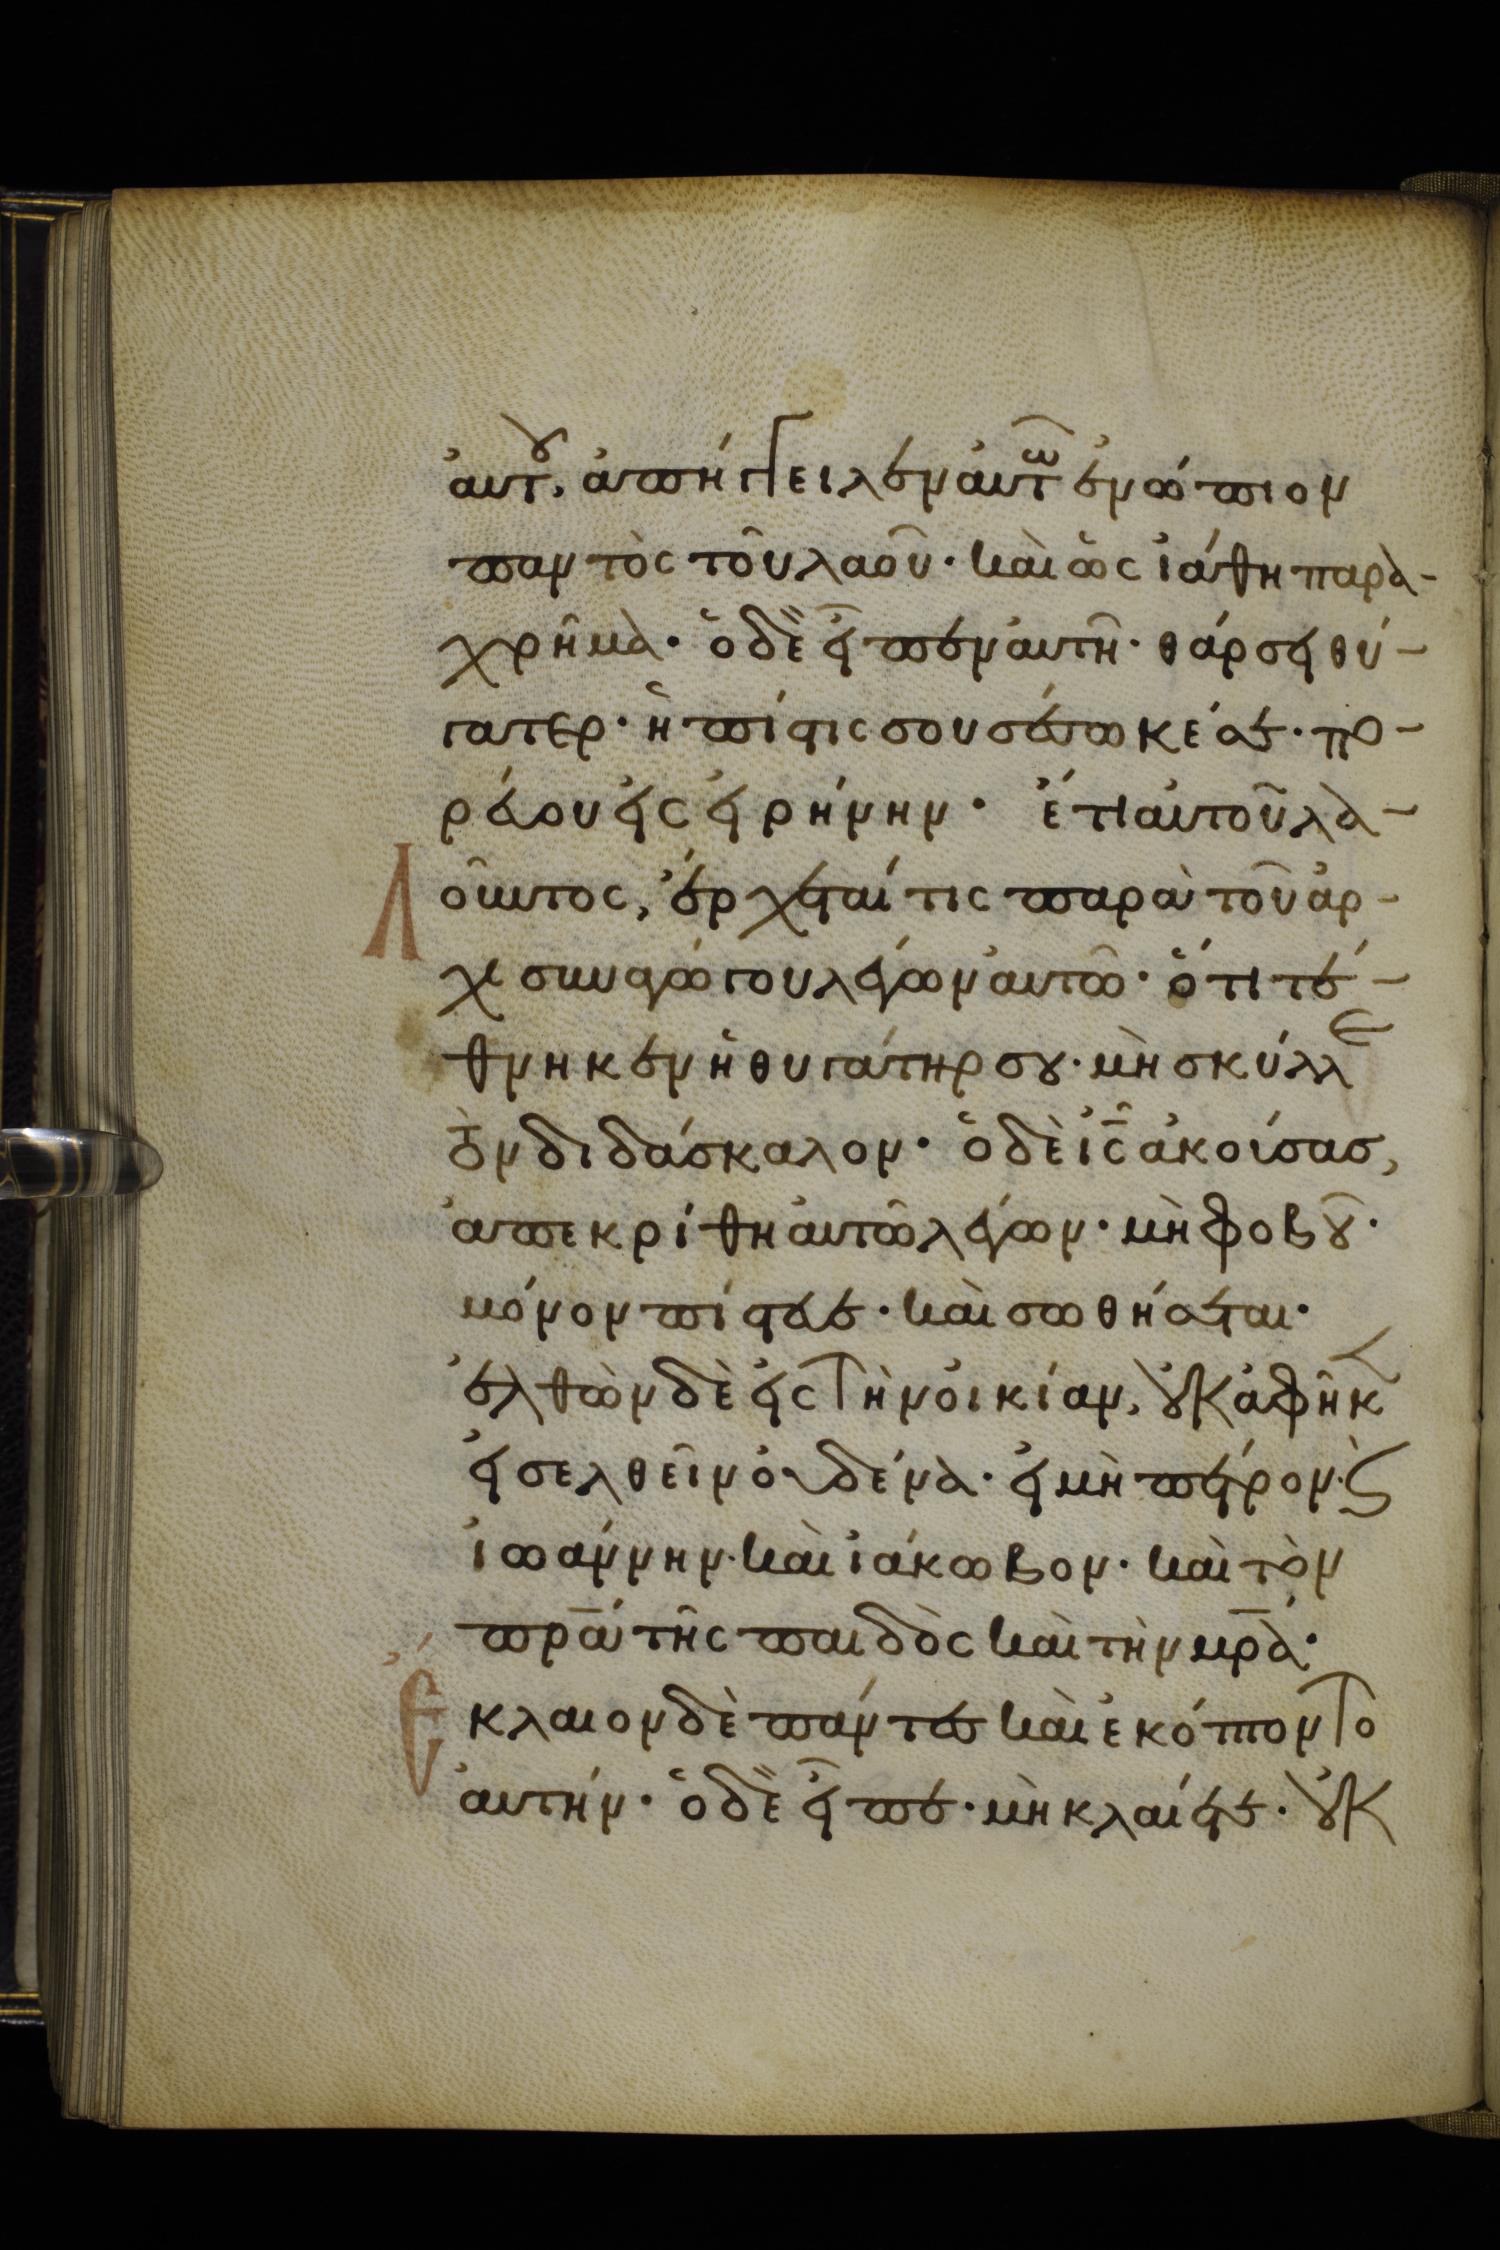 ἀυτοῦ, ἀπήγγειλεν ἀυτῶ ἐνώπιον
παντὸς τοῦ λαοῦ· καὶ ὡς ἰάθη παρὰ-
χρῆμὰ· ὁ δὲ εἶπεν ἀυτῆ· θάρσει θύ-
γατερ· ἡ πίστις σου σέσωκέ σε· πο-
ρεύου εἰς εἰρήνην· ἔτι ἀυτοῦ λὰ-
Λ
οῦντος, ἔρχεταί τις παρὰ τοῦ ἀρ-
χισυναγώγου λέγων ἀυτῶ· ὅτι τέ-
θνηκεν ἡ θυγάτηρ σου· μὴ σκύλλε
τὸν διδάσκαλον· ὁ δὲ ις̅ ἀκούσας,
ἀπεκρίθη ἀυτῶ λέγων· μὴ φοβοῦ·
μόνον πίστευε· καὶ σωθήσεται·
ἐλθὼν δὲ εἰς τὴν ὀικίαν, οὐκ ἀφῆκεν
εἰσελθεῖν ὀυδένὰ· εἰ μὴ πέτρον· καὶ
ἰωάννην· καὶ ἰάκωβον· καὶ τὸν
πρ̅α τῆς παιδὸς καὶ τὴν μρ̅ὰ·
Ἔ
κλαιον δὲ πάντες καὶ ἐκόπτοντο
ἀυτήν· ὁ δὲ εἶπε· μὴ κλαίετε· οὐκ